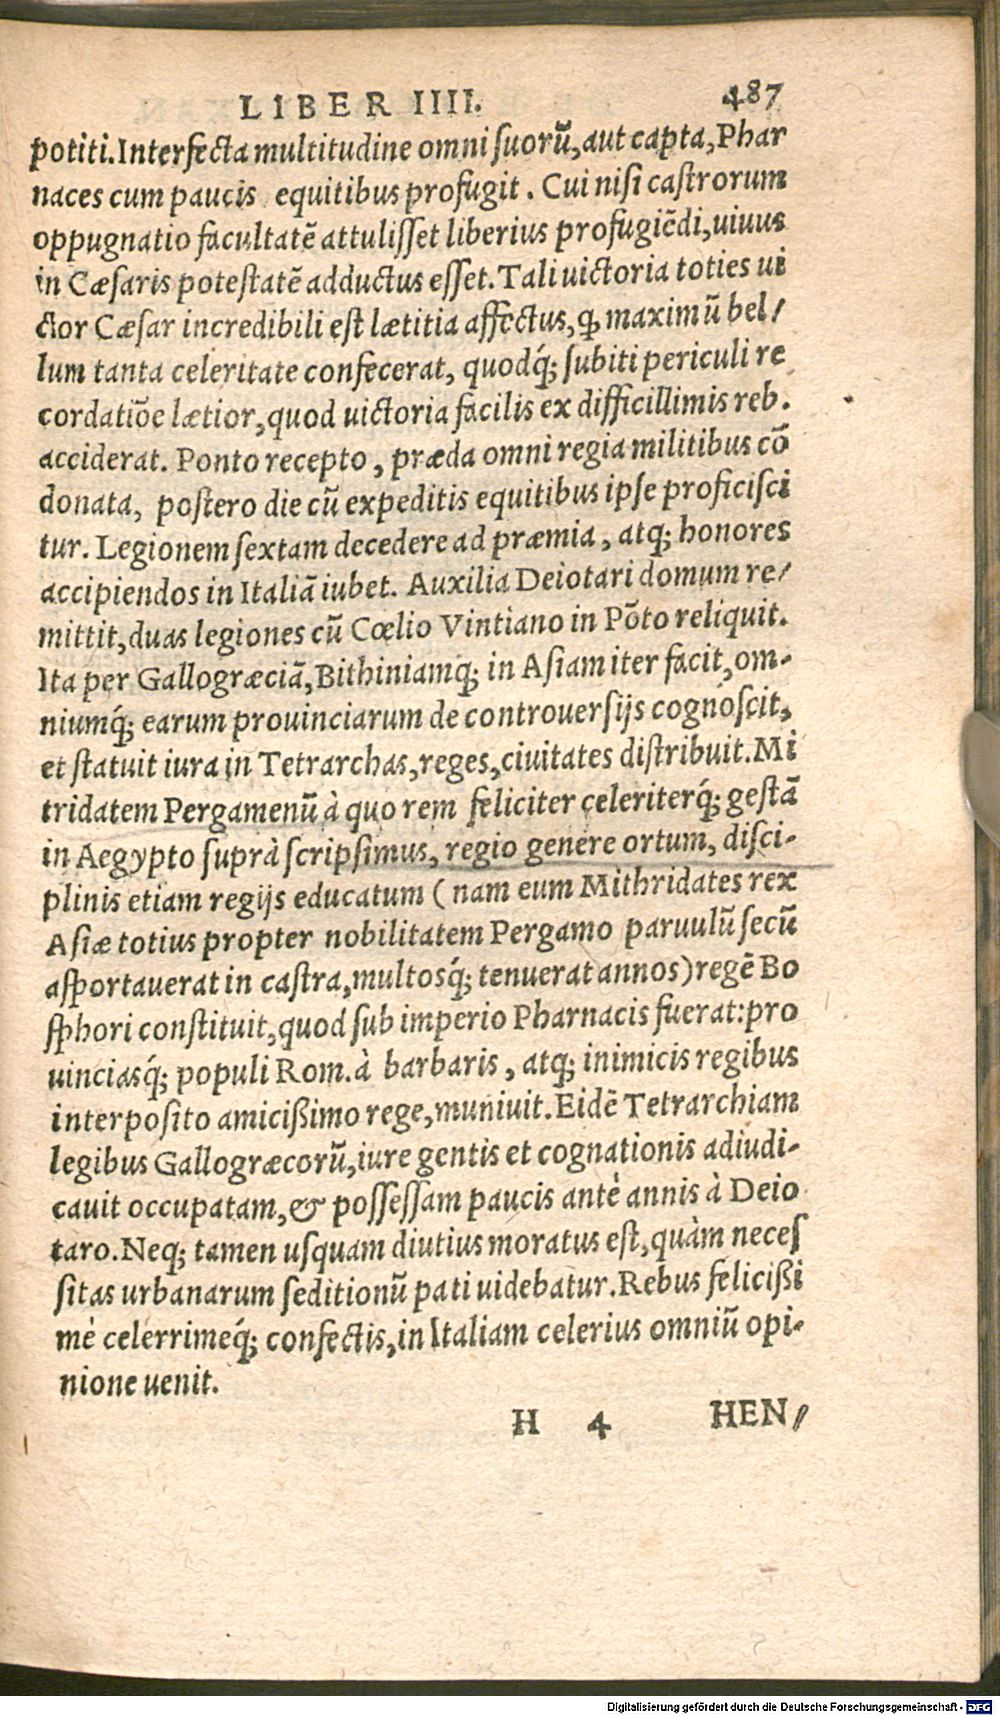 LIBER IIII. 487
potiti. Interfecta multitudine omni suorũ, aut capta, Phar
naces cum paucis equitibus profugit. Cui nisi castrorum
oppugnatio facultatẽ attulisset liberius profugiẽdi, uiuus
in Cæsaris potestatẽ adductus esset. Tali uictoria toties ui
ctor Cæsar incredibili est lætitia affectus, ꝙ maximũ bel/
lum tanta celeritate confecerat, quodq́; subiti periculi re
cordatiõe lætior, quod uictoria facilis ex difficillimis reb.
acciderat. Ponto recepto, præda omni regia militibus cõ
donata, postero die cũ expeditis equitibus ipse proficisci
tur. Legionem sextam decedere ad præmia, atq; honores
accipiendos in Italiã iubet. Auxilia Deiotari domum re/
mittit, duas legiones cũ Cœlio Vintiano in Põto reliquit.
Ita per Gallogræciã, Bithiniamq́; in Asiam iter facit, om-
niumq́; earum prouinciarum de controuersijs cognoscit,
et statuit iura in Tetrarchas, reges, ciuitates distribuit. Mi
tridatem Pergamenũ à quo rem feliciter celeriterq́; gestã
in Aegypto suprà scripsimus, regio genere ortum, disci-
plinis etiam regijs educatum (nam eum Mithridates rex
Asiæ totius propter nobilitatem Pergamo paruulũ secũ
asportauerat in castra, multosq́; tenuerat annos) regẽ Bo
sphori constituit, quod sub imperio Pharnacis fuerat: pro
uinciasq́; populi Rom. à barbaris, atq; inimicis regibus
interposito amicißimo rege, muniuit. Eidẽ Tetrarchiam
legibus Gallogræcorũ, iure gentis et cognationis adiudi-
cauit occupatam, & possessam paucis antè annis à Deio
taro. Neq; tamen usquam diutius moratus est, quàm neces
sitas urbanarum seditionũ pati uidebatur. Rebus felicißi
mè celerrimeq́; confectis, in Italiam celerius omniũ opi-
nione uenit.
H 4 HEN/
Digitalisierung gefördert durch die Deutsche Forschungsgemeinschaft - DFG